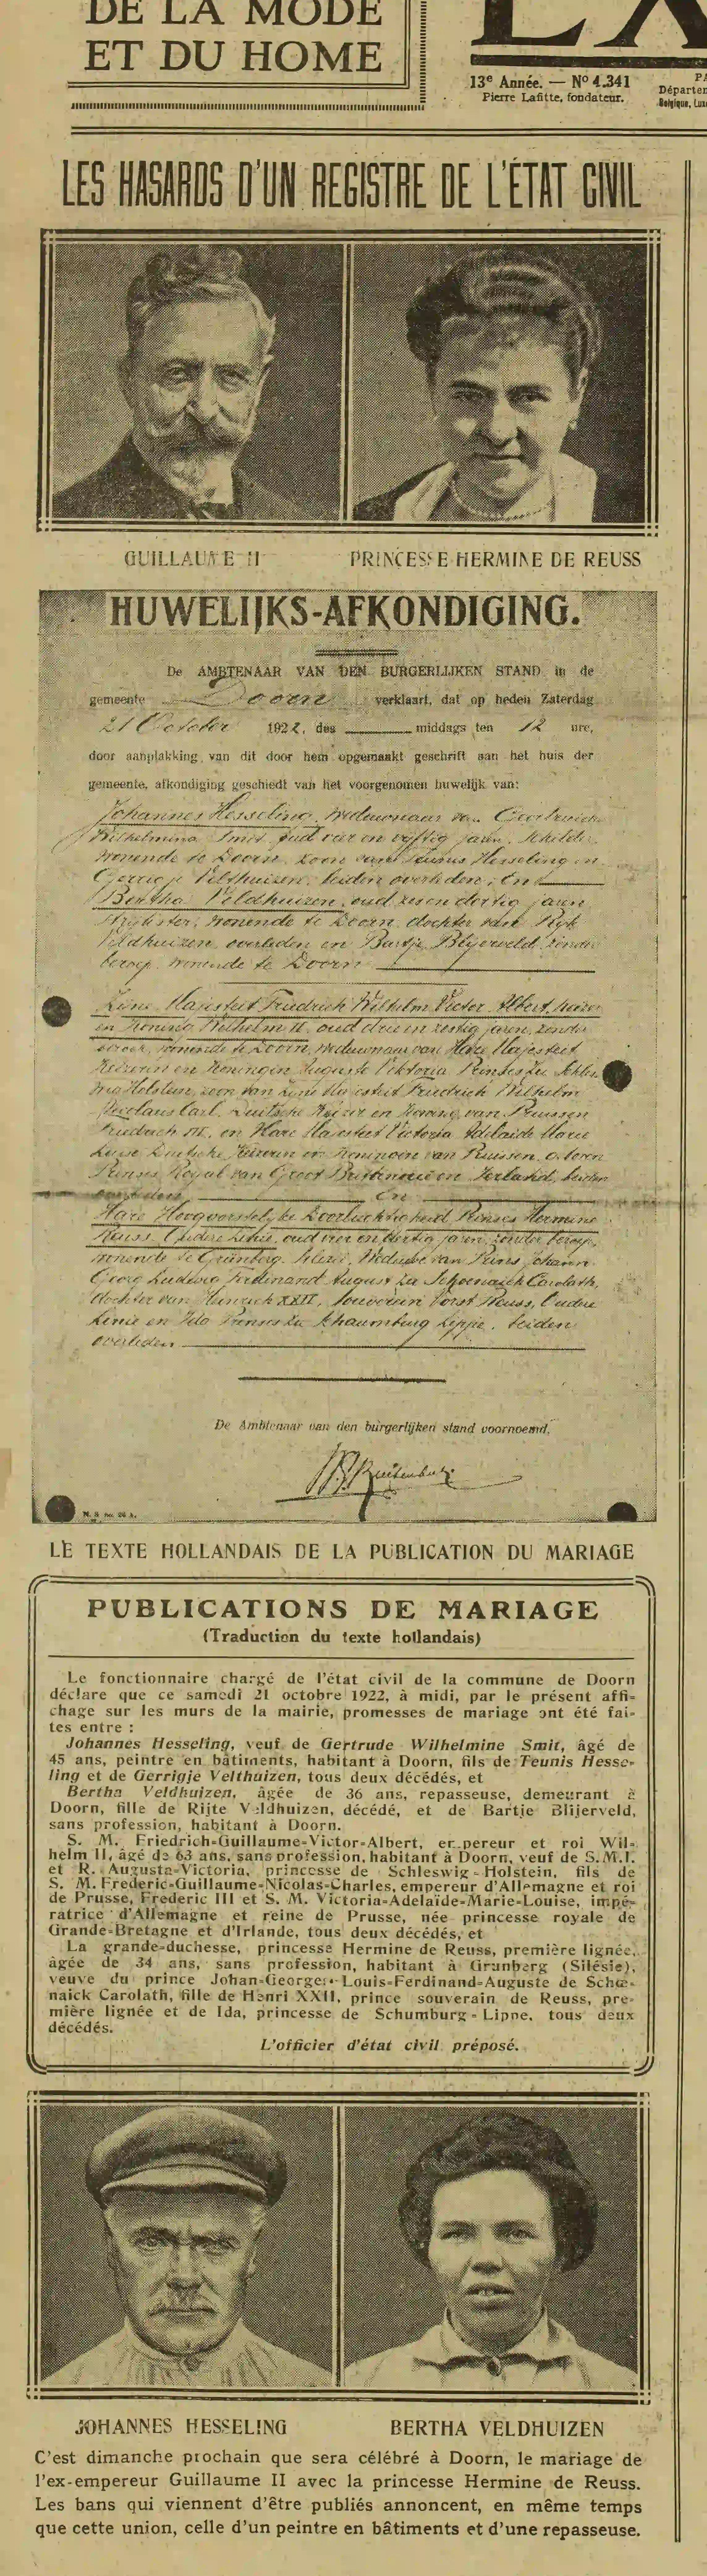 DE LA MODE
ET DU HOME
13e Année. — No 4.341
Pierre Lafitte, fondateur.
LES HASARDS D'UN REGISTRE DE L'ÉTAT CIVIL
GUILLAUME II
PRINCESSE HERMINE DE REUSS
HUWELIJKS-AFKONDIGING.
De AMBTENAAR VAN DEN BURGERLIJKEN STAND in de
gemeente Doorn verklaart, dat op heden Zaterdag
21 October 1922, des middags ten 12 ure,
door aanplakking van dit door hem opgemaakt geschrift aan het huis der
gemeente, afkondiging geschiedt van het voorgenomen huwelijk van:
Johannes Hesseling, weduwnaar van Geertruida
Wilhelmina Smit, oud vier en vijftig jaren, schilder,
wonende te Doorn, zoon van Teunis Hesseling en
Gerrigje Velthuizen, beiden overleden; En
Bertha Veldhuizen, oud zes en dertig jaren
Strijkster, wonende te Doorn, dochter van Ryk
Veldhuizen, overleden en Bartje Blyerveld, zonder
beroep, wonende te Doorn
Zijne Majesteit Friedrich Wilhelm Victor Albert, Keizer
en Koning Wilhelm II, oud drie en zestig jaren, zonder
beroep, wonende te Doorn, weduwnaar van Hare Majesteit
Keizerin en Koningin Auguste Viktoria Prinses zu Schles-
wig Holstein, zoon van Zijne Majesteit Friedrich Wilhelm
Nicolaus Carl, Deutsche Keizer en Koning van Pruissen
Friedrich III, en Hare Majesteit Victoria Adelaide Marie
Luise Deutsche Keizerin en Koningin van Pruissen, geboren
Prinses Royal van Groot Brittannië en Ierland, beiden
overleden En
Hare Hoogvorstelijke Doorluchtigheid Prinses Hermine
Reuss, Oudere Linie, oud vier en dertig jaren, zonder beroep,
wonende te Grünberg, Silezië, Weduwe van Prins Johann
Georg Ludwig Ferdinand August zu Schoenaich Carolath,
dochter van Heinrich XXII, Souverein Vorst Reuss, Oudere
Linie en Ida Prinses zu Schaumburg Lippe, beiden
overleden
De Ambtenaar van den burgerlijken stand voornoemd,
LE TEXTE HOLLANDAIS DE LA PUBLICATION DU MARIAGE
PUBLICATIONS DE MARIAGE
(Traduction du texte hollandais)
Le fonctionnaire chargé de l'état civil de la commune de Doorn
déclare que ce samedi 21 octobre 1922, à midi, par le présent affi-
chage sur les murs de la mairie, promesses de mariage ont été fai-
tes entre :
Johannes Hesseling, veuf de Gertrude Wilhelmine Smit, âgé de
45 ans, peintre en bâtiments, habitant à Doorn, fils de Teunis Hesse-
ling et de Gerrigje Velthuizen, tous deux décédés, et
Bertha Veldhuizen, âgée de 36 ans, repasseuse, demeurant à
Doorn, fille de Rijte Veldhuizen, décédé, et de Bartje Blijerveld,
sans profession, habitant à Doorn.
S. M. Friedrich-Guillaume-Victor-Albert, empereur et roi Wil-
helm II, âgé de 63 ans, sans profession, habitant à Doorn, veuf de S.M.I.
et R. Augusta-Victoria, princesse de Schleswig-Holstein, fils de
S. M. Frederic-Guillaume-Nicolas-Charles, empereur d'Allemagne et roi
de Prusse, Frederic III et S. M. Victoria-Adelaïde-Marie-Louise, impé-
ratrice d'Allemagne et reine de Prusse, née princesse royale de
Grande-Bretagne et d'Irlande, tous deux décédés, et
La grande-duchesse, princesse Hermine de Reuss, première lignée,
âgée de 34 ans, sans profession, habitant à Grunberg (Silésie),
veuve du prince Johan-Georges-Louis-Ferdinand-Auguste de Schœ-
naick Carolath, fille de Henri XXII, prince souverain de Reuss, pre-
mière lignée et de Ida, princesse de Schumburg-Lippe, tous deux
décédés.
L'officier d'état civil préposé.
JOHANNES HESSELING
BERTHA VELDHUIZEN
C'est dimanche prochain que sera célébré à Doorn, le mariage de
l'ex-empereur Guillaume II avec la princesse Hermine de Reuss.
Les bans qui viennent d'être publiés annoncent, en même temps
que cette union, celle d'un peintre en bâtiments et d'une repasseuse.